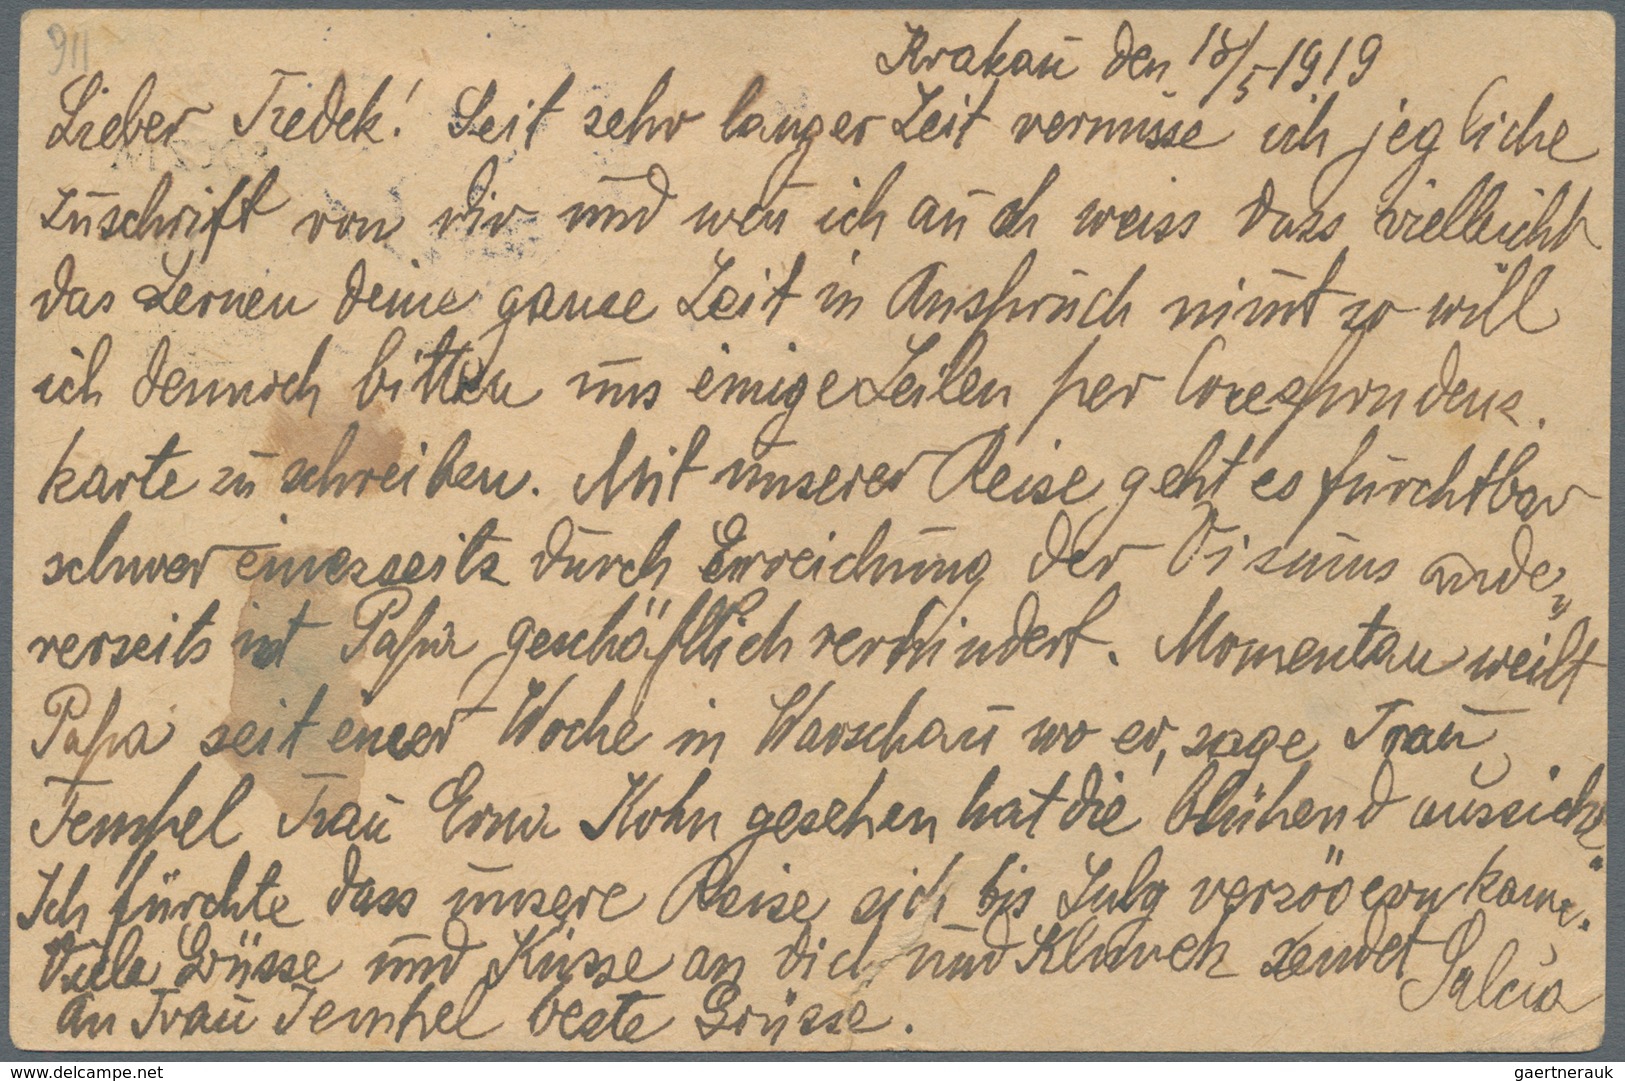 911
Krakau den 18/5 1919
Lieber Fredek! Seit sehr langer Zeit vermisse ich jegliche
Zuschrift von dir und wen̄ ich auch weiss dass vielleicht
das Lernen deine ganze Zeit in Anspruch nim̄t so will
ich dennoch bitten uns einige Zeilen per Correspondenz.
karte zu schreiben. Mit unserer Reise geht es furchtbar
schwer einesseits durch Erreichung der Visums ande„
rerseits ist Papa geschäftlich verhindert. Momentan weilt
Papa seit einer Woche in Warschau wo er, sage Frau
Tempel Frau Erna Kohn gesehen hat die blühend aussieht.
Ich fürchte dass unsere Reise sich bis July verzögern kann.
Viele Grüsse und Küsse an dich und sendet Salcia
an Frau Tempel beste Grüsse.
delcampe.net
gaertnerauk